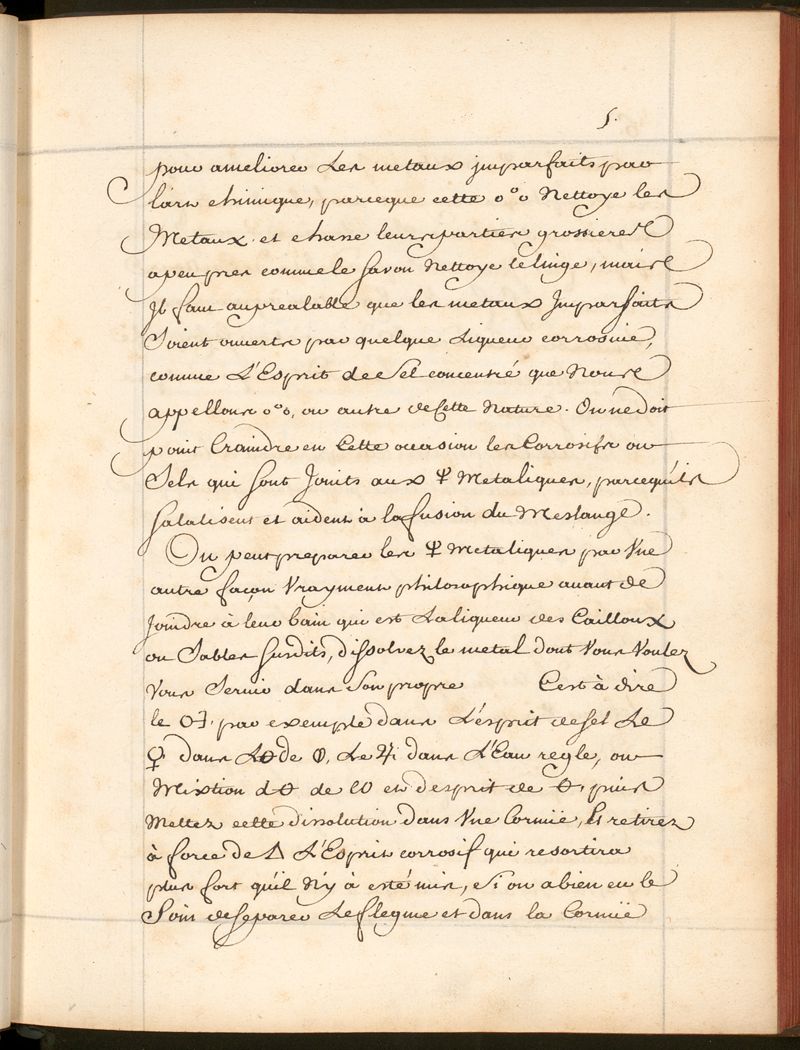 5.
pour ameliorer Les metaux jmparfaits par
l'art chimique, parceque cette o°o Nettoye les
Metaux et chasse leurs parties grossieres
apeu pres comme le savon Nettoye le linge, mais
Jl faut aupréalable que les metaux Jmparfaits
Soient ouverts par quelque Liqueur corrosive,
comme L'Esprit de Sel concentré que Nous
appellons o°o, ou autre de Cette Nature. On ne doit
point Craindre en Cette occasion les Corrosifs ou
Sels qui sont Joints aux Metaliques, parcequ'ils
salalisent et aident à la fusion du Meslange.
On peut preparer les Metaliques par Vne
autre façon Vrayment philosophique auant de
Joindre à leur bain qui est La liqueur des Cailloux
ou Sables susdits, dissolvez le metal dont Vous Voulez
Vous Servir dans Son propre C'est à dire
le par exemple dans L'esprit de sel Le
♀ dans L de Le ♃ dans L'Eau regle, ou
Mixtion d de et d'esprit de puis
Mettez cette dissolution dans Vne Cornüe, Et retirez
à force de △ L'Esprit corrosif qui resortira
plus fort qu'il N'y à esté mis, Si on a bien eu le
Soin de separer Le flegme et dans la Cornüe